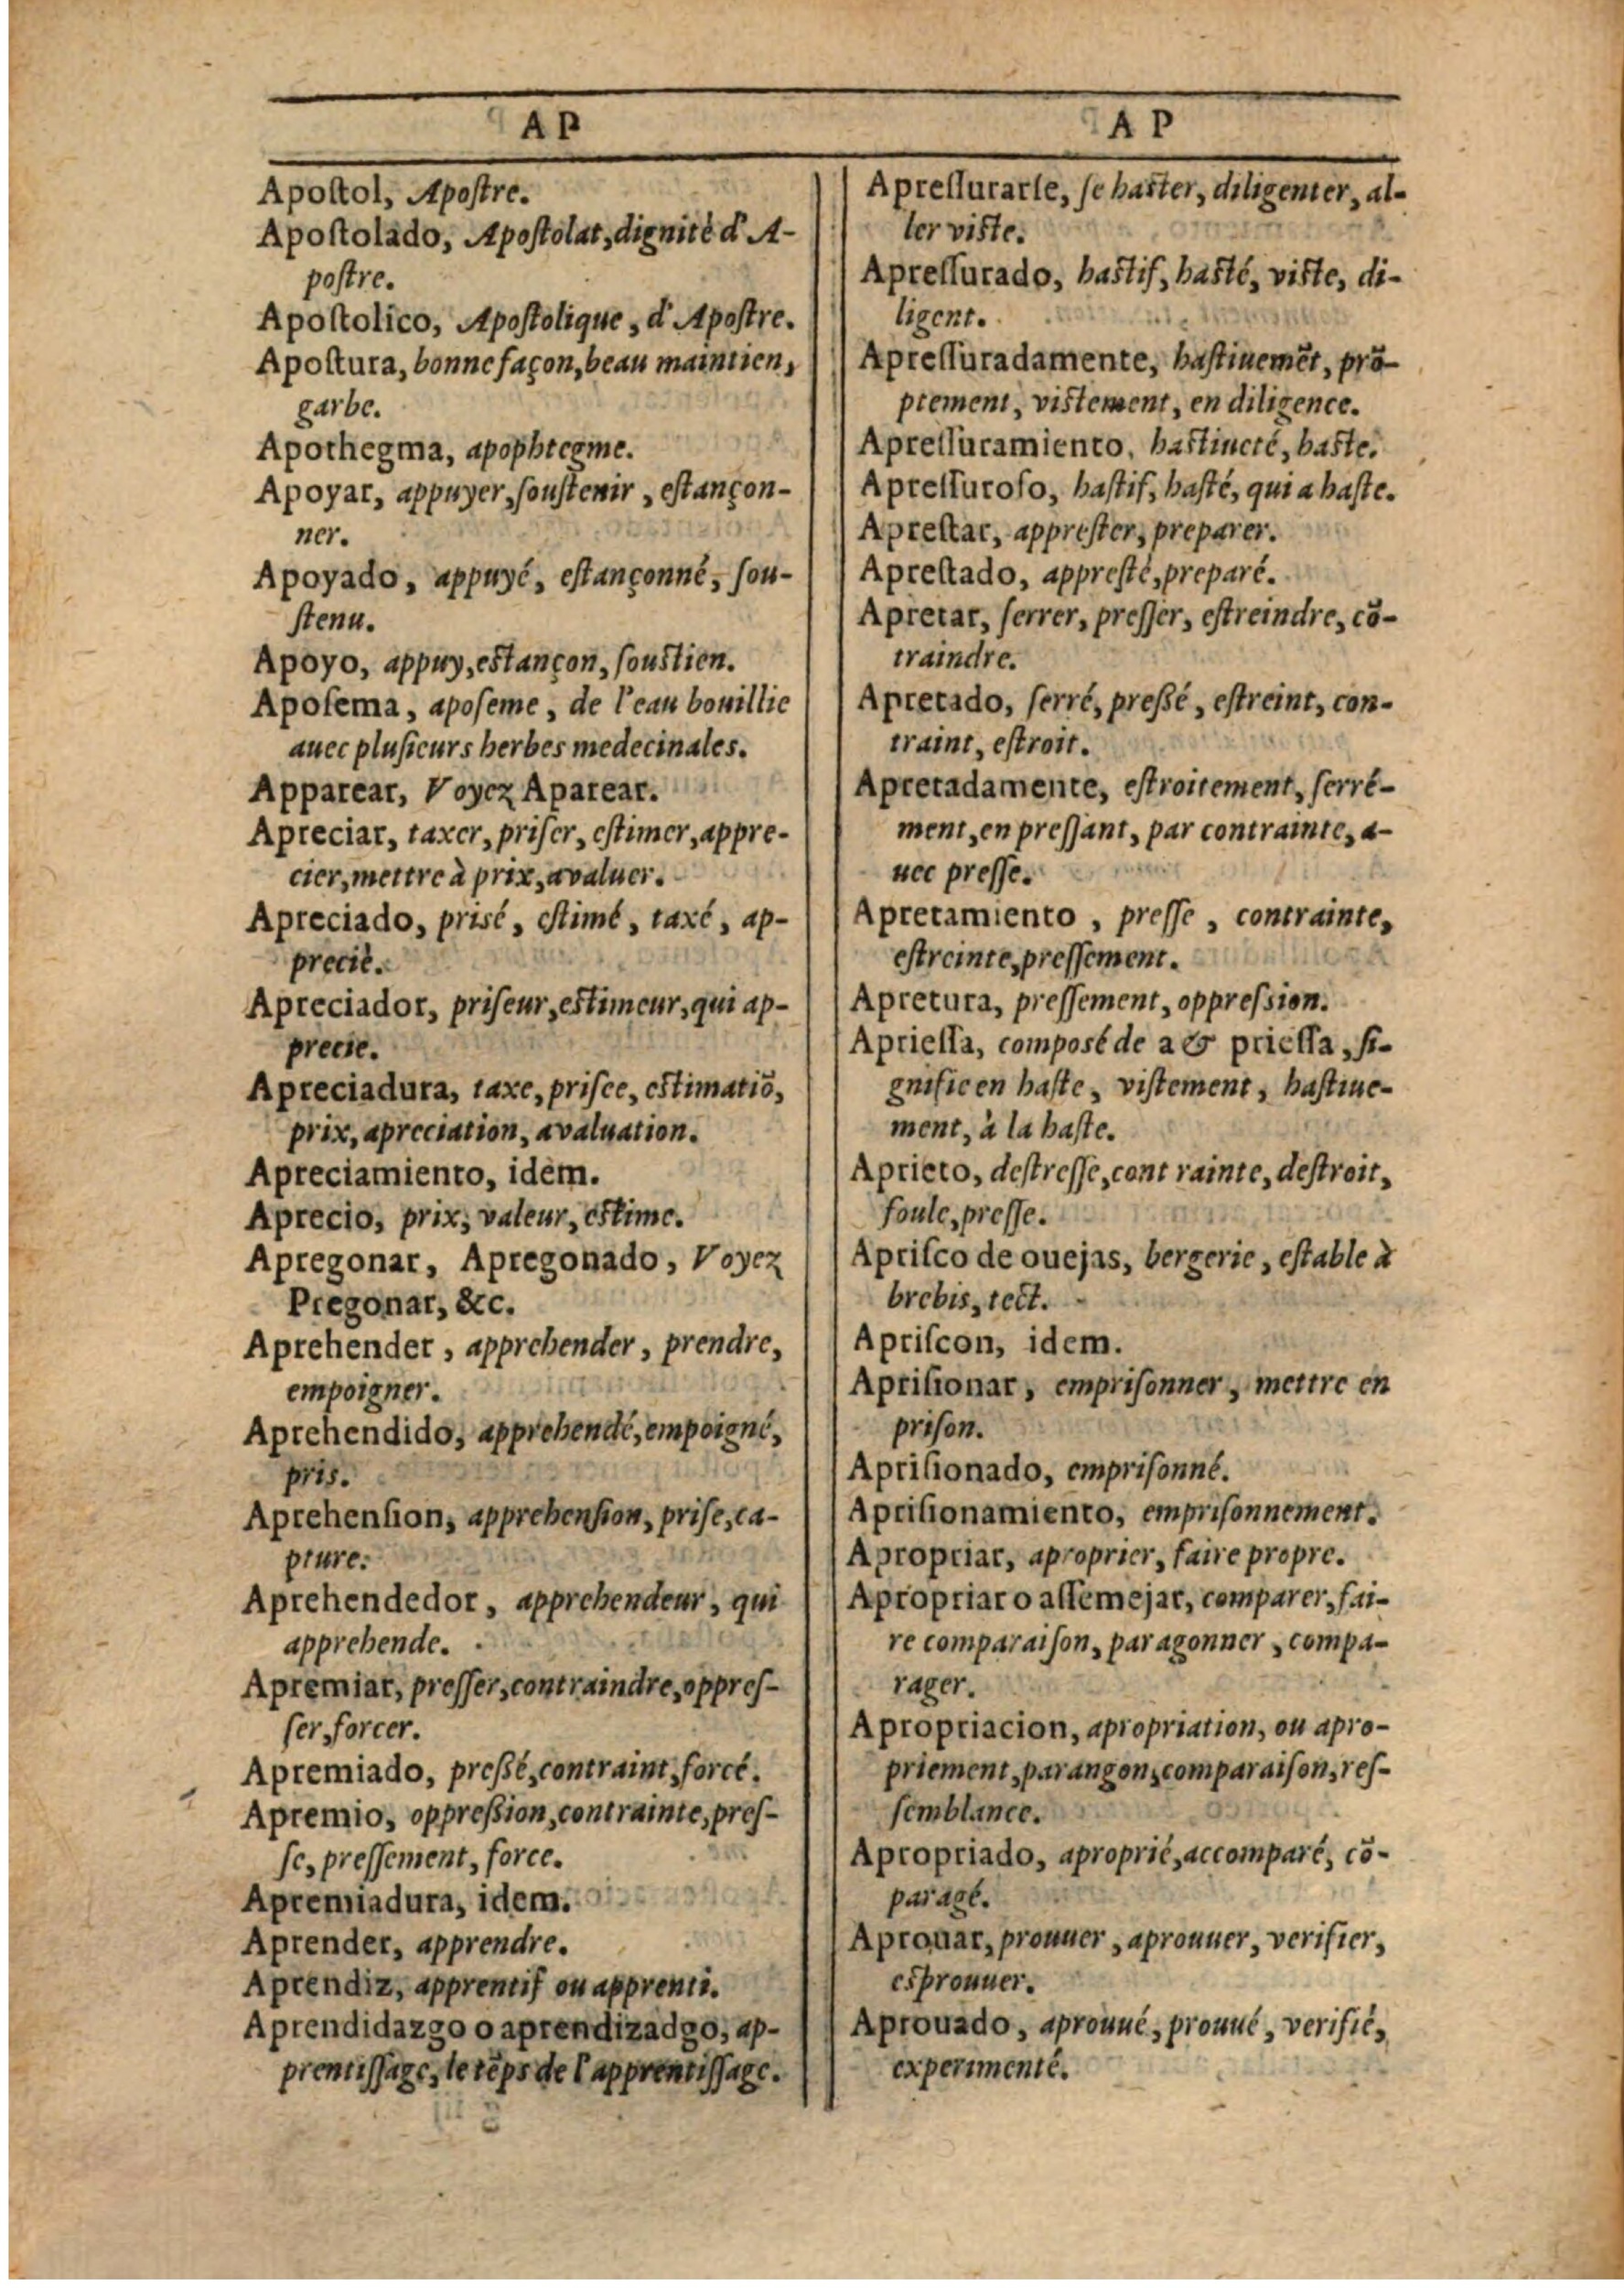 AP
Apoſtol, Apoſtre.
Apoſtolado, Apoſtolat, dignité d'A-
poſtre.
Apoſtolico, Apoſtolique, d'Apoſtre.
Apoſtura, bonne façon, beau maintien,
garbe.
Apothegma, apophtegme.
Apoyar, appuyer, ſouſtenir, eſtançon-
ner.
Apoyado, appuyé, eſtançonné, ſou-
ſtenu.
Apoyo, appuy, eſtançon, ſouſtien.
Apoſema, apoſeme, de l'eau bouillie
auec pluſieurs herbes medecinales.
Apparear, Voyez Aparear.
Apreciar, taxer, priſer, eſtimer, appre-
cier, mettre à prix, avaluer.
Apreciado, prisé, eſtimé, taxé, ap-
precié.
Apreciador, priſeur, eſtimeur, qui ap-
precie.
Apreciadura, taxe, priſee, eſtimatiō,
prix, apreciation, avaluation.
Apreciamiento, idem.
Aprecio, prix, valeur, eſtime.
Apregonar, Apregonado, Voyez
Pregonar, &c.
Aprehender, apprehender, prendre,
empoigner.
Aprehendido, apprehendé, empoigné,
pris.
Aprehenſion, apprehenſion, priſe, ca-
pture.
Aprehendedor, apprehendeur, qui
apprehende.
Apremiar, preſſer, contraindre, oppreſ-
ſer, forcer.
Apremiado, preßé, contraint, forcé.
Apremio, oppreßion, contrainte, preſ-
ſe, preſſement, force.
Apremiadura, idem.
Aprender, apprendre.
Aprendiz, apprentif ou apprenti.
Aprendidazgo o aprendizadgo, ap-
prentiſſage, le tēps de l'apprentiſſage.
AP
Apreſſurarſe, ſe haſter, diligenter, al-
ler viſte.
Apreſſurado, haſtif, haſté, viſte, di-
ligent.
Apreſſuradamente, haſtiuemēt, prō-
ptement, viſtement, en diligence.
Apreſſuramiento, haſtiueté, haſte.
Apreſſuroſo, haſtif, haſté, qui a haſte.
Apreſtar, appreſter, preparer.
Apreſtado, appreſté, preparé.
Apretar, ſerrer, preſſer, eſtreindre, cō-
traindre.
Apretado, ſerré, preßé, eſtreint, con-
traint, eſtroit.
Apretadamente, eſtroitement, ſerré-
ment, en preſſant, par contrainte, a-
uec preſſe.
Apretamiento, preſſe, contrainte,
eſtreinte, preſſement.
Apretura, preſſement, oppreſsion.
Aprieſſa, composé de a & prieſſa, ſi-
gnifie en haſte, viſtement, haſtiue-
ment, à la haſte.
Aprieto, deſtreſſe, cont rainte, deſtroit,
foule, preſſe.
Apriſco de ouejas, bergerie, eſtable à
brebis, tect.
Apriſcon, idem.
Apriſionar, empriſonner, mettre en
priſon.
Apriſionado, empriſonné.
Apriſionamiento, empriſonnement.
Apropriar, aproprier, faire propre.
Apropriar o aſſemejar, comparer, fai-
re comparaiſon, paragonner, compa-
rager.
Apropriacion, apropriation, ou apro-
priement, parangon, comparaiſon, reſ-
ſemblance.
Apropriado, aproprié, accomparé, cō-
paragé.
Aprouar, prouuer, aprouuer, verifier,
eſprouuer.
Aprouado, aprouué, prouué, verifié,
experimenté.